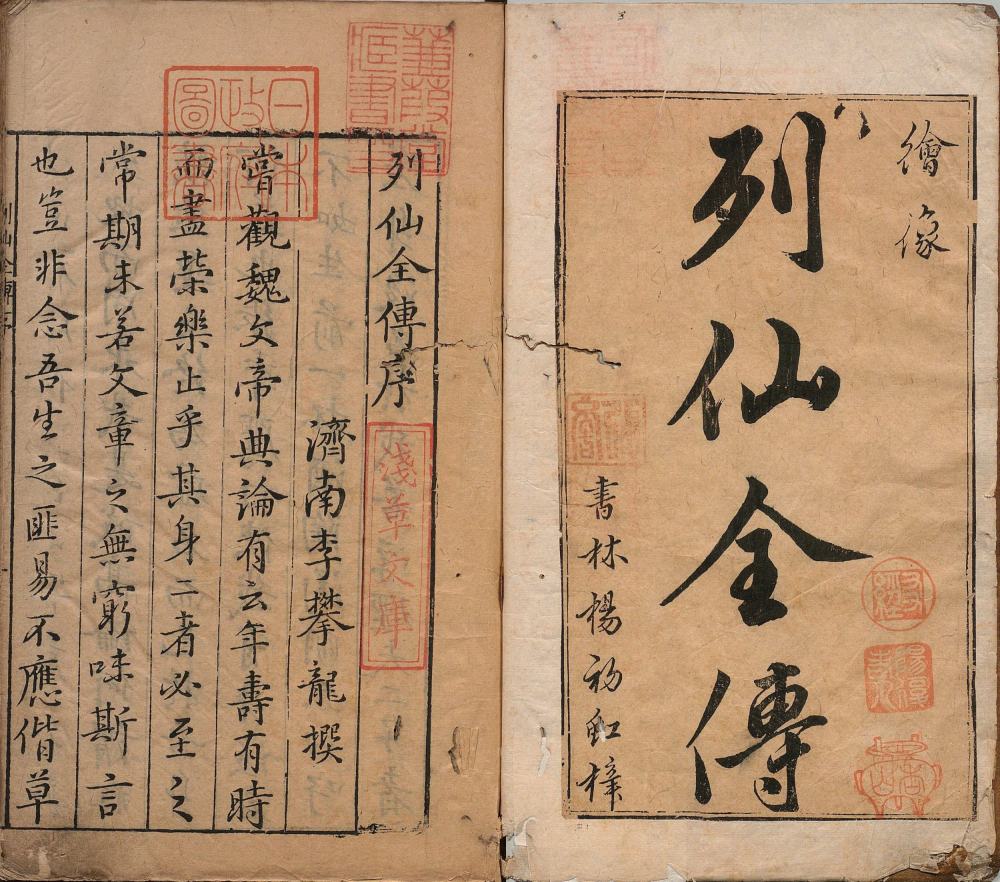 繪像
列仙全傳
書林楊初虹梓
列仙全傳序
濟南李攀龍撰
嘗觀魏文帝典論有云年壽有時
而盡榮樂止乎其身二者必至之
常期未若文章之無窮味斯言
也豈非念吾生之匪易不應偕草
蒹葭堂藏書印
日本政府圖書
淺草文庫